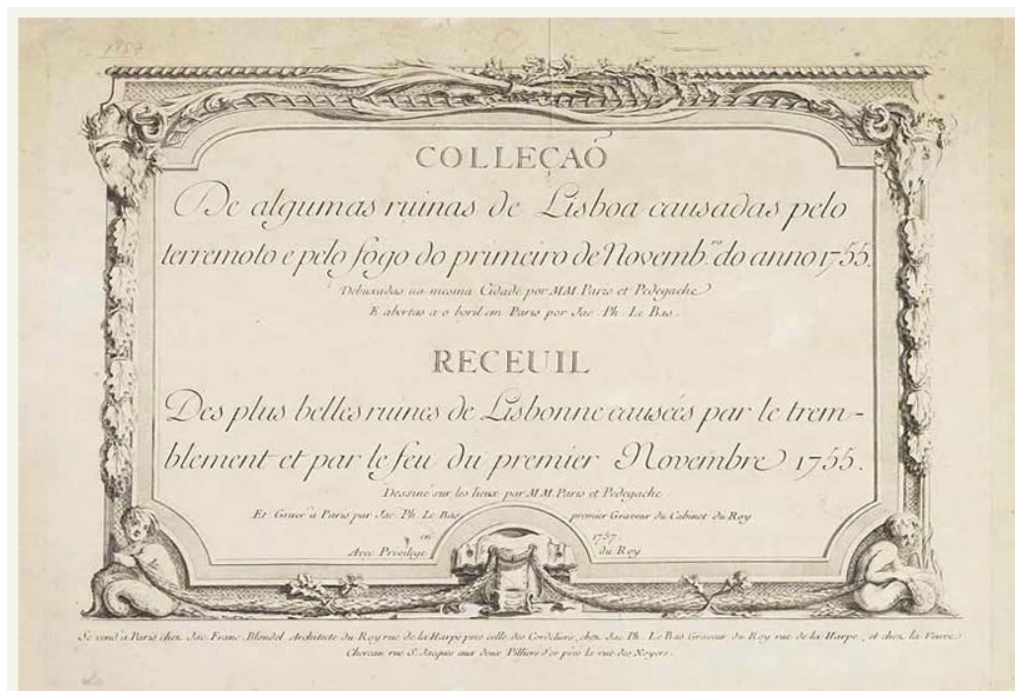 1857
COLLEÇAÓ
De algumas ruinas de Lisboa causadas pelo
terremoto e pelo fogo do primeiro de Novemb.ro do anno 1755.
Debuxadas na mesma Cidade por MM. Paris et Pedegache
E abertas a o boril em Paris por Jac. Ph. Le Bas.
RECEUIL
Des plus belles ruines de Lisbonne causées par le trem-
blement et par le feu du premier Novembre 1755.
Dessiné sur les lieux par MM. Paris et Pedegache
Et Gravé a Paris par Jac. Ph. Le Bas premier Graveur du Cabinet du Roy
en 1757.
Avec Privilege du Roy
Se vend a Paris chez Jac. Franc. Blondel Architecte du Roy rue de la Harpe près celle des Cordeliers, chez Jac. Ph. Le Bas Graveur du Roy rue de la Harpe, et chez la Veuve
Chereau rue S. Jacques aux deux Pilliers d'or près la rue des Noyers.